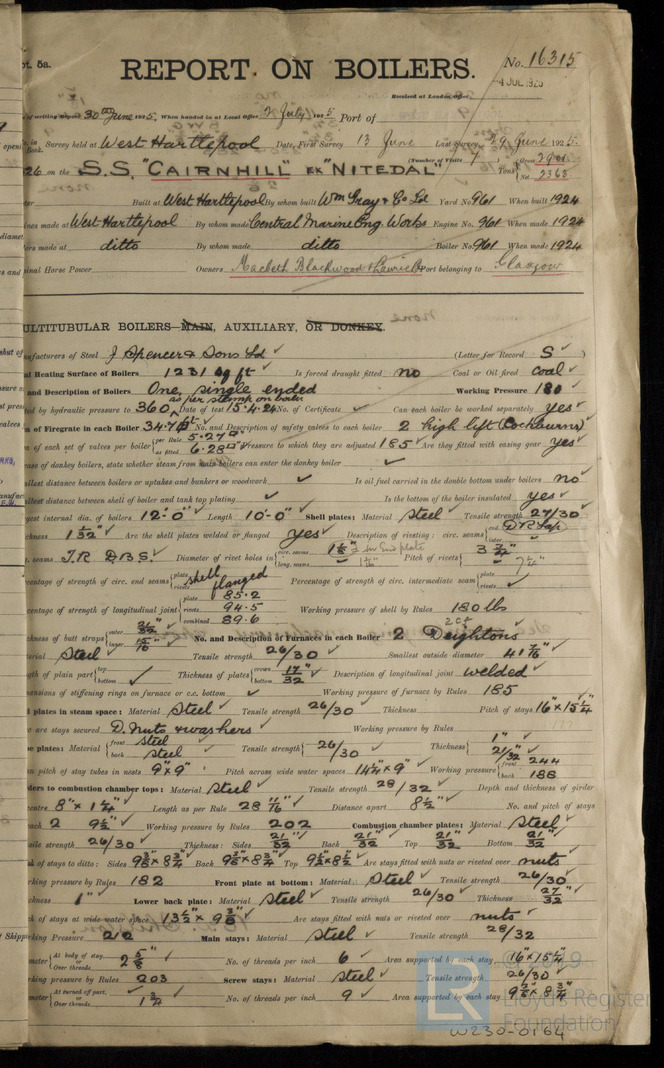 pt. 5a.
No. 16315
REPORT ON BOILERS.
4 JUL 1925
Received at London Office
of writing Report 30th June 1925. When handed in at Local Office 2 July 1925 Port of
in Survey held at West Hartlepool Date, First Survey 13 June Last Survey 29 June 1925
Book.
(Number of Visits 7) Gross
26 on the S.S. "CAIRNHILL" ex "NITEDAL" Tons Net 2368
Built at West Hartlepool By whom built Wm Gray & Co Ld Yard No. 961 When built 1924
ines made at West Hartlepool By whom made Central Marine Eng. Works Engine No. 961 When made 1924
ers made at ditto By whom made ditto Boiler No. 961 When made 1924
inal Horse Power Owners Macbeth Blackwood & Port belonging to Glasgow
none
ULTITUBULAR BOILERS—MAIN, AUXILIARY, OR DONKEY.
nufacturers of Steel J Spencer & Sons Ld ✓ (Letter for Record S ✓)
al Heating Surface of Boilers 1231 sq ft ✓ Is forced draught fitted no Coal or Oil fired coal ✓
and Description of Boilers One, single ended Working Pressure 180
as per stamp on boiler
ted by hydraulic pressure to 360 Date of test 15.4.24 No. of Certificate ✓ Can each boiler be worked separately yes ✓
a of Firegrate in each Boiler 34.7 ft No. and Description of safety valves to each boiler 2 high lift (Cockburns)
a of each set of valves per boiler per Rule 5.27 as fitted 6.28 Pressure to which they are adjusted 185 ✓ Are they fitted with easing gear yes ✓
ase of donkey boilers, state whether steam from main boilers can enter the donkey boiler ✓
llest distance between boilers or uptakes and bunkers or woodwork ✓ Is oil fuel carried in the double bottom under boilers no
llest distance between shell of boiler and tank top plating ✓ Is the bottom of the boiler insulated yes ✓
gest internal dia. of boilers 12'-0" ✓ Length 10'-0" Shell plates: Material steel ✓ Tensile strength 27/30 ✓
ckness 1 1/32" ✓ Are the shell plates welded or flanged yes ✓ Description of riveting: circ. seams end D.R. Lap inter ✓
. seams T.R. D.B.S. ✓ Diameter of rivet holes in circ. seams long. seams Pitch of rivets
centage of strength of circ. end seams plate rivets shell flanged Percentage of strength of circ. intermediate seam plate rivets ✓
centage of strength of longitudinal joint plate 85.2 rivets 94.5 combined 89.6 Working pressure of shell by Rules 180 lbs
ckness of butt straps outer 21/32" inner No. and Description of Furnaces in each Boiler 2 Deightons
erial Steel ✓ Tensile strength 26/30 ✓ Smallest outside diameter 41 7/16" ✓
gth of plain part top bottom ✓ Thickness of plates crown bottom 17/32" ✓ Description of longitudinal joint welded ✓
ensions of stiffening rings on furnace or c.c. bottom ✓ Working pressure of furnace by Rules 185
l plates in steam space: Material Steel ✓ Tensile strength 26/30 ✓ Thickness Pitch of stays 16" x 15 1/4"
w are stays secured D. Nuts & washers ✓ Working pressure by Rules
e plates: Material front steel back steel ✓ Tensile strength 26/30 ✓ Thickness 1" ✓ 21/32" ✓
n pitch of stay tubes in nests 9" x 9" ✓ Pitch across wide water spaces 14 1/4" x 9" ✓ Working pressure front 244 back 188
ders to combustion chamber tops: Material steel ✓ Tensile strength 28/32 ✓ Depth and thickness of girder
centre 8" x 1 1/4" ✓ Length as per Rule 28 11/16" ✓ Distance apart 8 1/2" ✓ No. and pitch of stays
ach 2 9 1/2" ✓ Working pressure by Rules 202 Combustion chamber plates: Material Steel ✓
ile strength 26/30 ✓ Thickness: Sides 21/32" Back 21/32" Top 21/32" ✓ Bottom 21/32"
h of stays to ditto: Sides Back Top 9 1/2" x 8 1/2" Are stays fitted with nuts or riveted over nuts ✓
rking pressure by Rules 182 Front plate at bottom: Material Steel ✓ Tensile strength 26/30 ✓
ckness 1" ✓ Lower back plate: Material Steel ✓ Tensile strength 26/30 ✓ Thickness 27/32" ✓
h of stays at wide water space 13 1/2" x 9 3/8" ✓ Are stays fitted with nuts or riveted over nuts ✓
king Pressure 212 Main stays: Material steel ✓ Tensile strength 28/32 ✓
meter At body of stay, or Over threads 2 5/8" No. of threads per inch 6 ✓ Area supported by each stay 16" x 15 1/4"
rking pressure by Rules 203 Screw stays: Material steel ✓ Tensile strength 26/30 ✓
meter At turned off part, or Over threads 1 3/4" ✓ No. of threads per inch 9 ✓ Area supported by each stay
LR
Lloyd's Register
Foundation
W230-0164